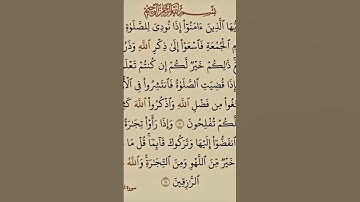 بِسْمِ اللَّهِ الرَّحْمَٰنِ الرَّحِيمِ
يُّهَا الَّذِينَ ءَامَنُوٓا۟ إِذَا نُودِىَ لِلصَّلَوٰةِ
مِ الْجُمُعَةِ فَاسْعَوْا۟ إِلَىٰ ذِكْرِ اللَّهِ وَذَرُ
ذَٰلِكُمْ خَيْرٌ لَّكُمْ إِن كُنتُمْ تَعْلَ
إِذَا قُضِيَتِ الصَّلَوٰةُ فَانتَشِرُوا۟ فِى الْأَ
تَغُوا۟ مِن فَضْلِ اللَّهِ وَاذْكُرُوا۟ اللَّهَ كَثِ
لَّكُمْ تُفْلِحُونَ ١٠ وَإِذَا رَأَوْا۟ تِجَٰرَةً
انفَضُّوٓا۟ إِلَيْهَا وَتَرَكُوكَ قَآئِمًا ۚ قُلْ مَا
خَيْرٌ مِّنَ اللَّهْوِ وَمِنَ التِّجَٰرَةِ ۚ وَاللَّهُ
الرَّٰزِقِينَ ١١